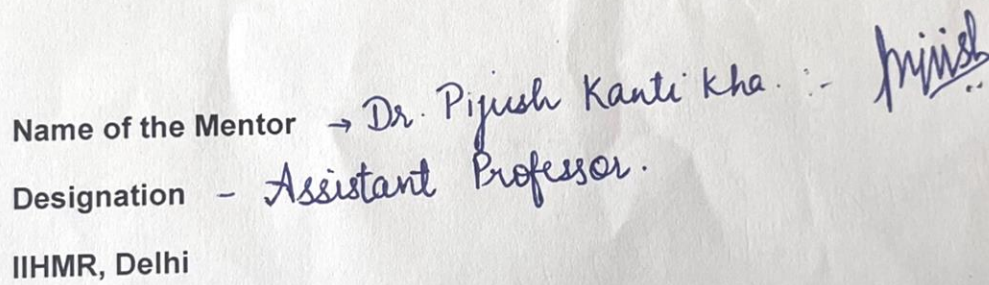 Name of the Mentor → Dr. Pijush Kanti Kha. :-
Designation - Assistant Professor.
IIHMR, Delhi